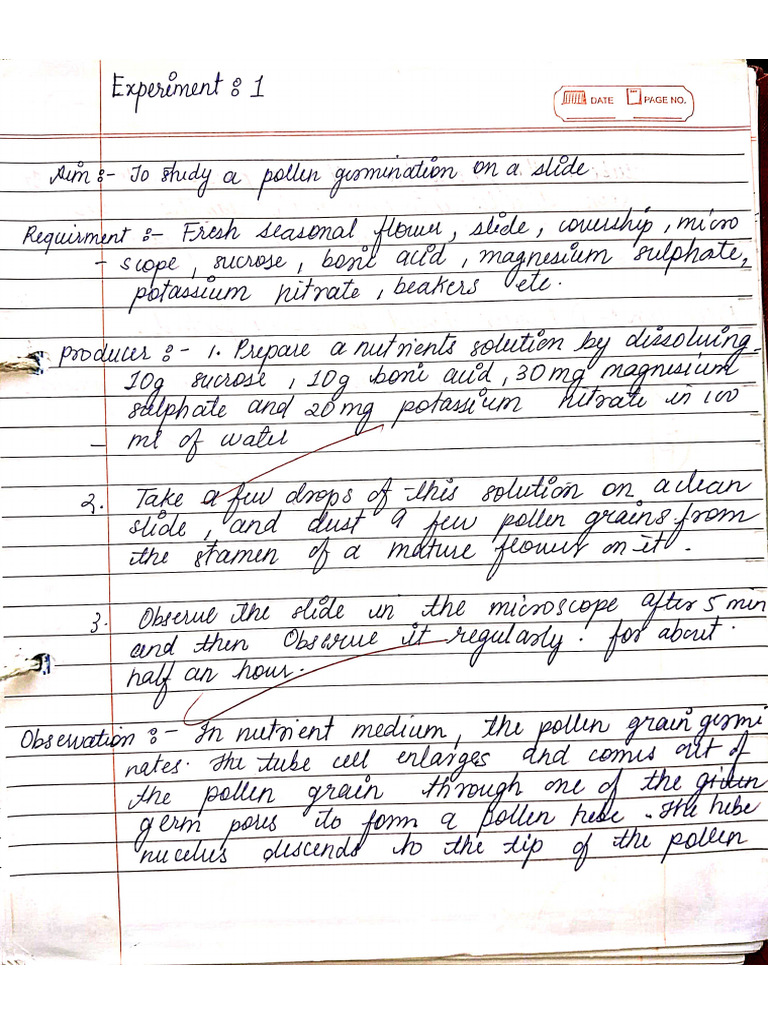 Experiment : 1
DATE PAGE NO.
Aim :- To study a pollen germination on a slide
Requirment :- Fresh seasonal flower, slide, covership, micro
- scope, sucrose, boric acid, magnesium sulphate,
potassium nitrate, beakers etc.
Producer :- 1. Prepare a nutrients solution by dissolving
10g sucrose, 10g boric acid, 30 mg magnesium
sulphate and 20 mg potassium nitrate in 100
- ml of water
2. Take a few drops of this solution on a clean
slide, and dust a few pollen grains from
the stamen of a mature flower on it.
3. Observe the slide in the microscope after 5 min
and then Observe it regularly. for about.
half an hour.
Observation :- In nutrient medium, the pollen grain germi
nates. The tube cell enlarges and comes out of
the pollen grain through one of the given
germ pores to form a pollen tube. The tube
nucelus descends to the tip of the pollen